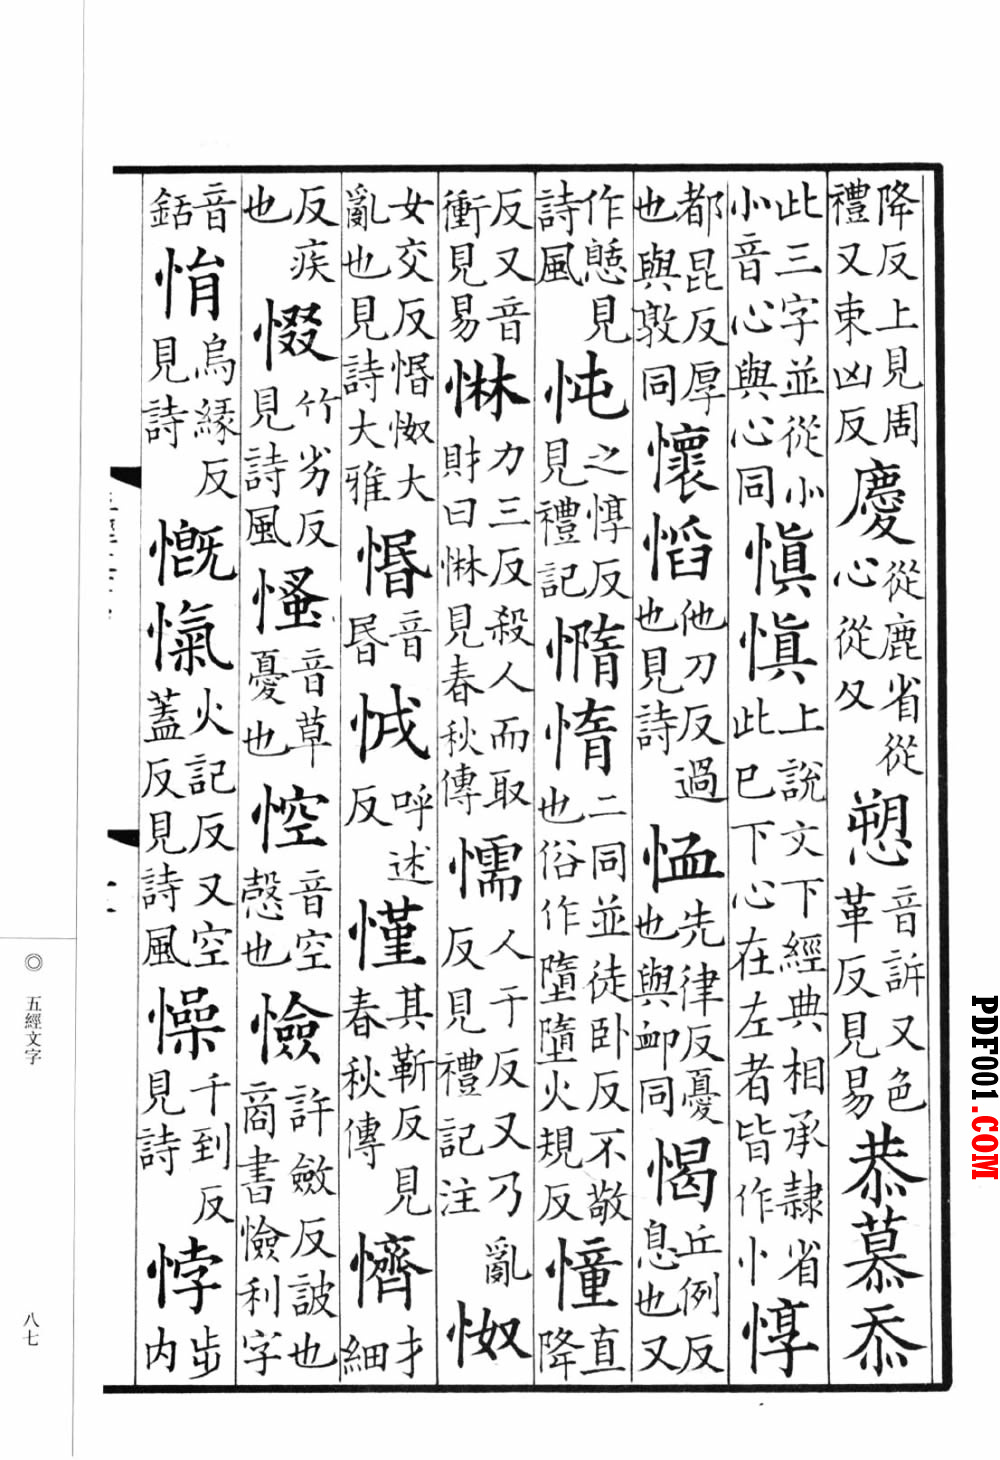 降反上見周禮又束凶反慶從鹿省從心從夂愬音訴又色革反見易恭慕忝
此三字並從小小音心與心同慎愼上說文下經典相承隷省此巳下心在左者皆作忄惇
都昆反厚也與敦同懷慆他刀反過也見詩恤先律反憂也與䘏同愒丘例反息也又
作憩見詩風忳之惇反見禮記憜惰二同並徒卧反不敬也俗作墮墮火規反憧直降
反又音衝見易惏力三反殺人而取財曰惏見春秋傳懦人于反又乃亂反見禮記注怓
女交反惛怓大亂也見詩大雅惛音昬怴呼述反慬其靳反見春秋傳懠才細
反疾也惙竹劣反見詩風慅音草憂也悾音空慤也憸許斂反詖也商書憸利字
音銛悁烏緣反見詩慨愾火記反又空蓋反見詩風懆千到反見詩悖步内
◎ 五經文字
八七
PDF001.COM